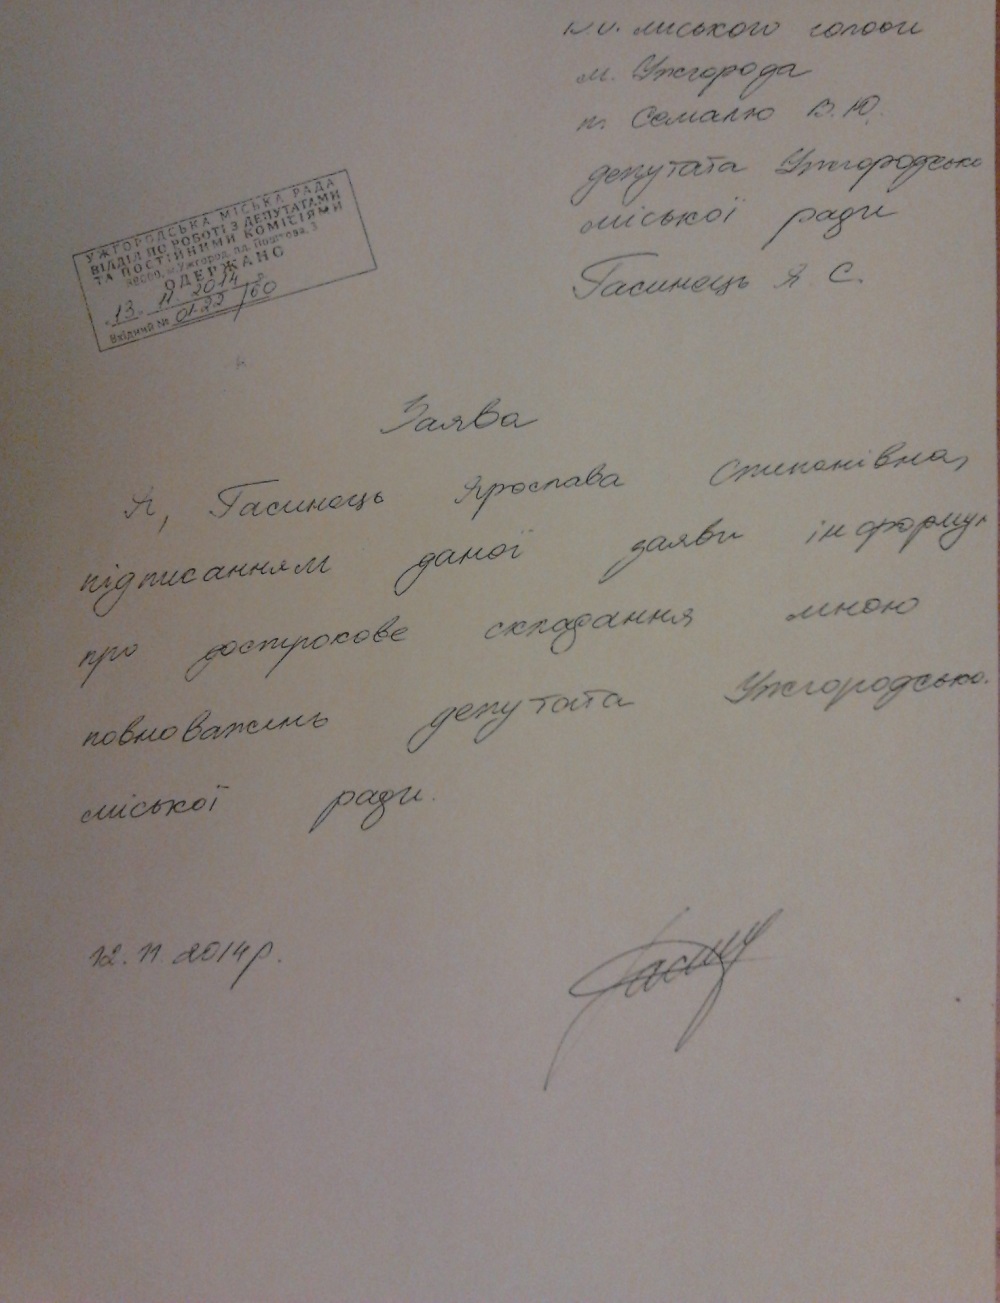 в.о. міського голови
м. Ужгорода
п. Семалю В.Ю.
депутата Ужгородсько
міської ради
Гасинець Я С.
УЖГОРОДСЬКА МІСЬКА РАДА
ВІДДІЛ ПО РОБОТІ З ДЕПУТАТАМИ
ТА ПОСТІЙНИМИ КОМІСІЯМИ
88000, м.Ужгород, пл. Поштова, 3
ОДЕРЖАНО
"13" 11 2014 р.
Вхідний № 01-22/60
Заява
Я, Гасинець Ярослава Степанівна,
підписанням даної заяви інформую
про дострокове складання мною
повноважень депутата Ужгородсько
міської ради.
12.11.2014р.